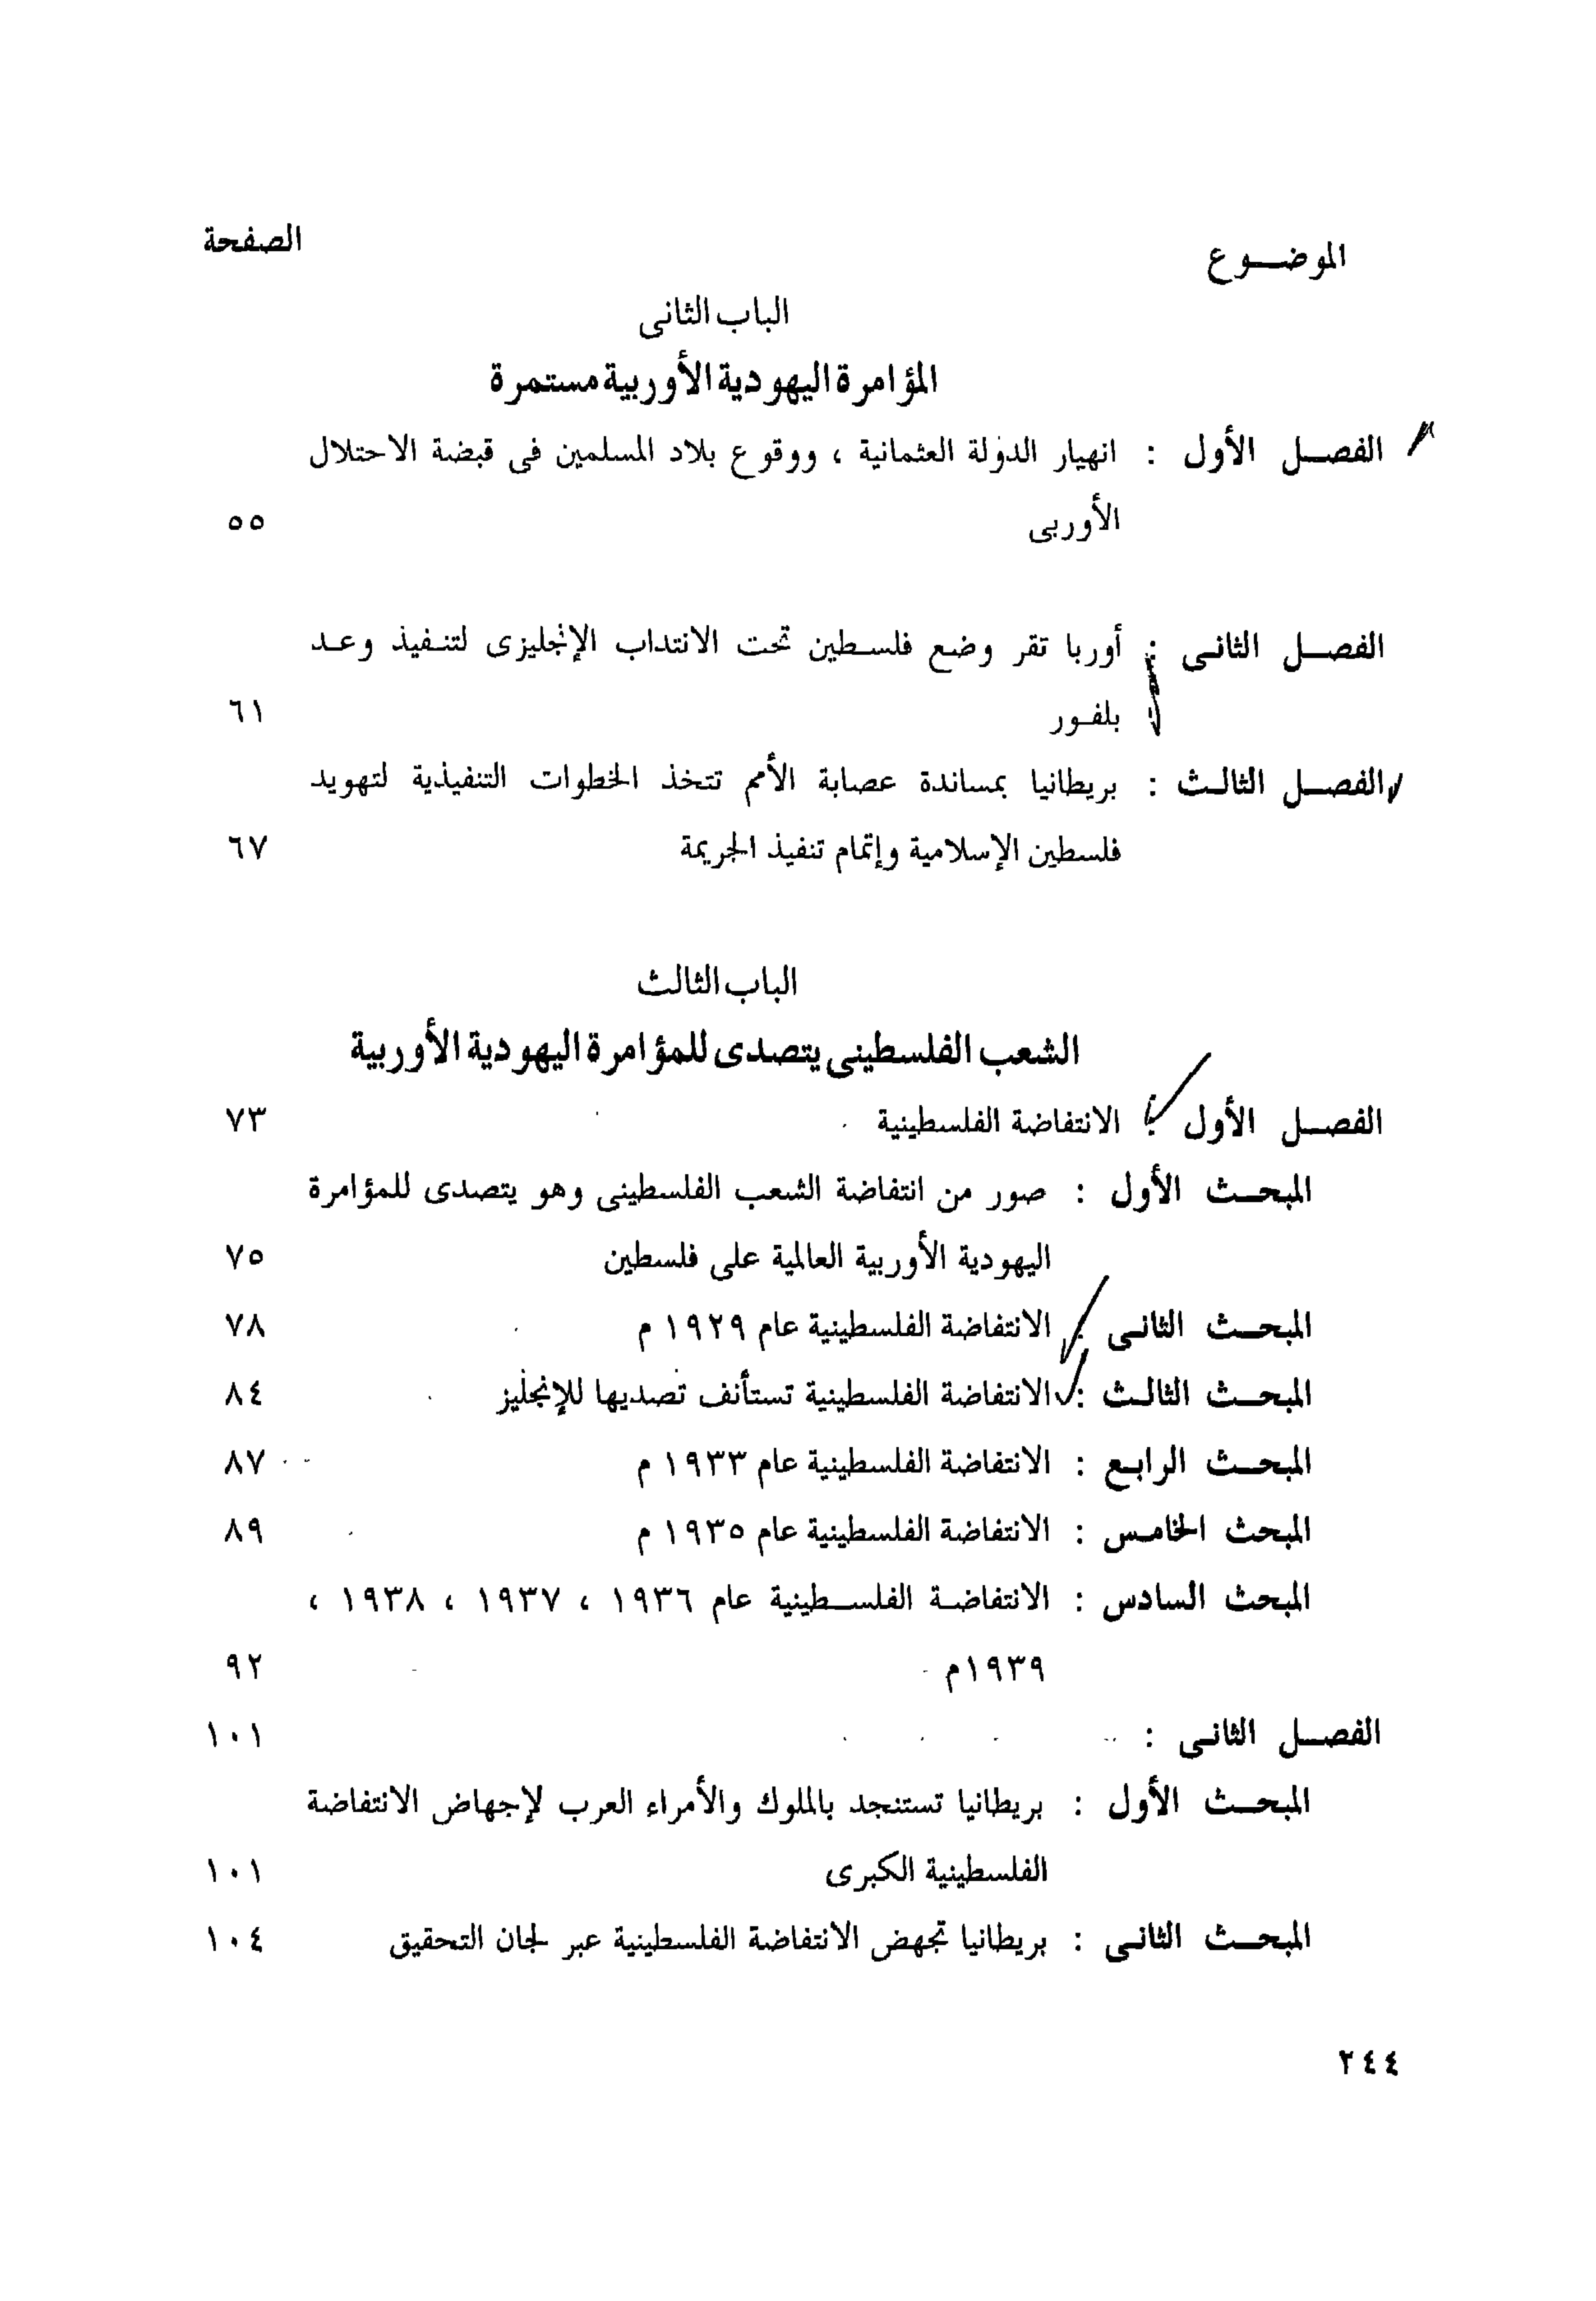 الموضـــوع
الصفحة
الباب الثانى
المؤامرة اليهودية الأوربية مستمرة
الفصــل الأول : انهيار الدولة العثمانية ، ووقوع بلاد المسلمين فى قبضة الاحتلال
الأوربى ٥٥
الفصــل الثانـى : أوربا تقر وضع فلسـطين تحت الانتداب الإنجليزى لتنـفيذ وعـد
بلفـور ٦١
الفصــل الثالـث : بريطانيا بمساندة عصابة الأمم تتخذ الخطوات التنفيذية لتهويد
فلسطين الإسلامية وإتمام تنفيذ الجريمة ٦٧
الباب الثالث
الشعب الفلسطينى يتصدى للمؤامرة اليهودية الأوربية
الفصــل الأول : الانتفاضة الفلسطينية ٧٣
المبحــث الأول : صور من انتفاضة الشعب الفلسطينى وهو يتصدى للمؤامرة
اليهودية الأوربية العالمية على فلسطين ٧٥
المبحــث الثانـى : الانتفاضة الفلسطينية عام ١٩٢٩ م ٧٨
المبحــث الثالـث : الانتفاضة الفلسطينية تستأنف تصديها للإنجليز ٨٤
المبحــث الرابـع : الانتفاضة الفلسطينية عام ١٩٣٣ م ٨٧
المبحث الخامـس : الانتفاضة الفلسطينية عام ١٩٣٥ م ٨٩
المبحث السادس : الانتفاضـة الفلسـطينية عام ١٩٣٦ ، ١٩٣٧ ، ١٩٣٨ ،
١٩٣٩م ٩٢
الفصــل الثانـى : ١٠١
المبحــث الأول : بريطانيا تستنجد بالملوك والأمراء العرب لإجهاض الانتفاضة
الفلسطينية الكبرى ١٠١
المبحــث الثانـى : بريطانيا تجهض الانتفاضة الفلسطينية عبر لجان التحقيق ١٠٤
٢٤٤